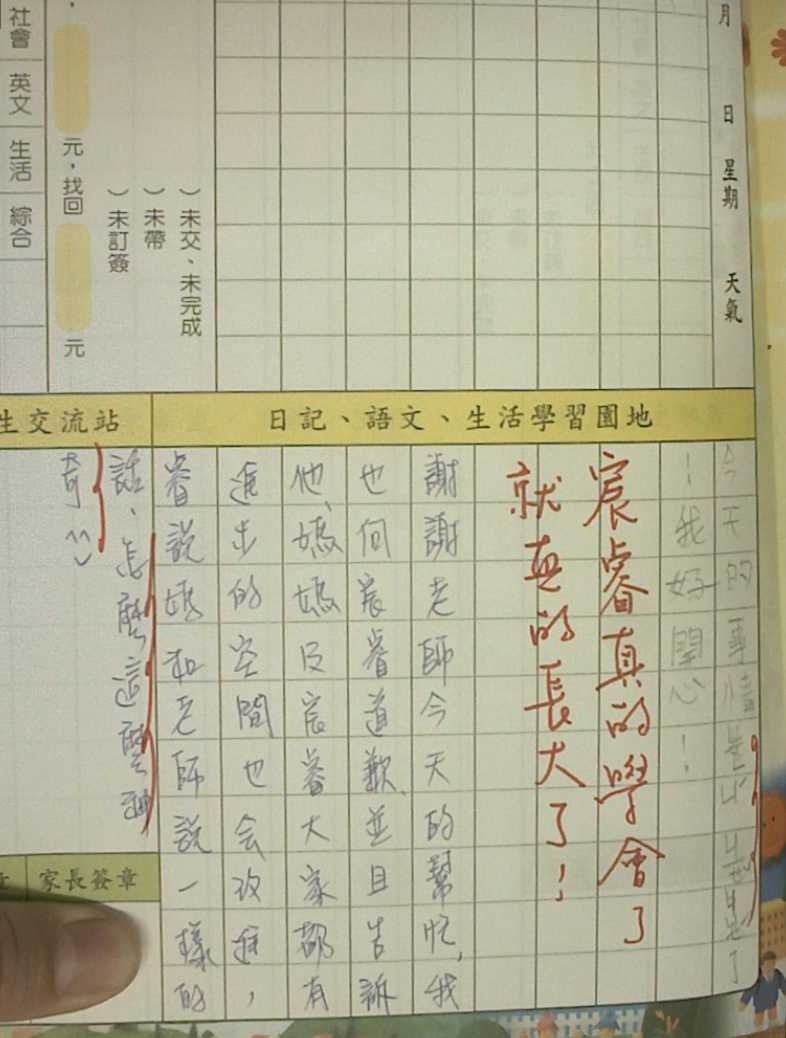 月 日 星期 天氣
)未交、未完成
)未帶
)未訂簽
元,找回 元
社會 英文 生活 綜合
日記、語文、生活學習園地
生交流站
今天的事情
了
!我好開心!
宸睿真的學會了
就真的長大了!
謝謝老師今天的幫忙,我
也向宸睿道歉、並且告訴
他、媽媽及宸睿大家都有
進步的空間也会改進,
睿說媽和老師說一樣的
話、怎麼這麼神
奇
家長簽章
章